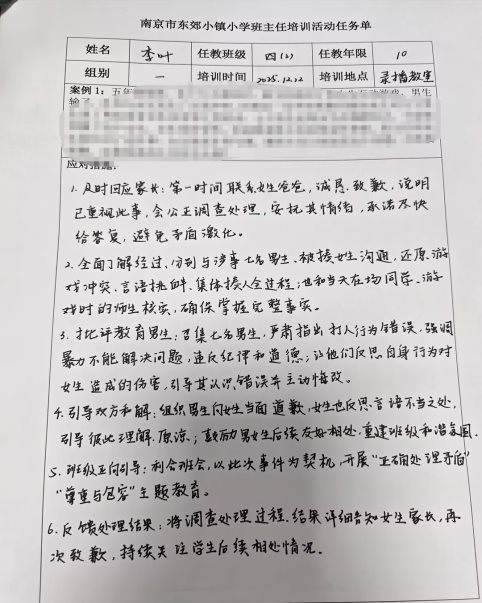 南京市东郊小镇小学班主任培训活动任务单
姓名 李叶 任教班级 四(2) 任教年限 10
组别 一 培训时间 2025.12.12 培训地点 录播教室
案例1：五年
男生
输了
应对措施：
1. 及时回应家长：第一时间联系女生爸爸，诚恳致歉，说明
已重视此事，会公正调查处理，安抚其情绪，承诺尽快
给答复，避免矛盾激化。
2. 全面了解经过：分别与涉事七名男生、被揍女生沟通，还原游
戏冲突、言语挑衅、集体揍人全过程；也和当天在场同学、游
戏时的师生核实，确保掌握完整事实。
3. 批评教育男生：召集七名男生，严肃指出打人行为错误，强调
暴力不能解决问题，违反纪律和道德；让他们反思自身行为对
女生造成的伤害，引导其认识错误并主动悔改。
4. 引导双方和解：组织男生向女生当面道歉，女生也反思言语不当之处，
引导彼此理解、原谅；鼓励男女生后续友好相处，重建班级和谐氛围。
5. 班级正向引导：利合班会，以此次事件为契机，开展“正确处理矛盾”
“尊重与包容”主题教育。
6. 反馈处理结果：将调查处理过程、结果详细告知女生家长，再
次致歉，持续关注学生后续相处情况。